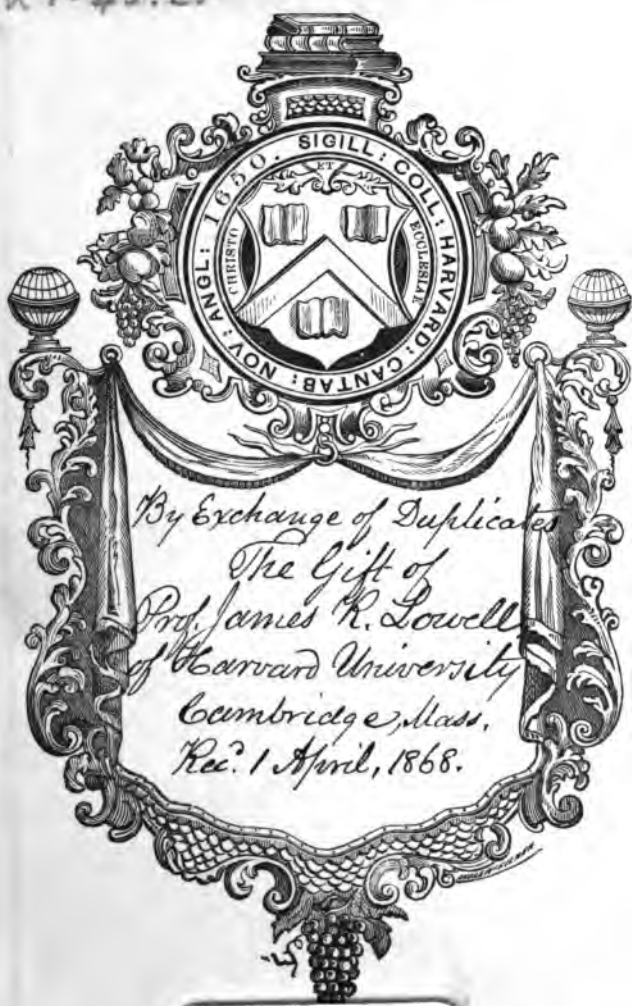 SIGILL: COLL: HARVARD: CANTAB: NOV: ANGL: 1650.
ET
CHRISTO
ECCLESIAE
By Exchange of Duplicates
The Gift of
Prof. James R. Lowell,
of Harvard University
Cambridge, Mass.
Rec'd. 1 April, 1868.